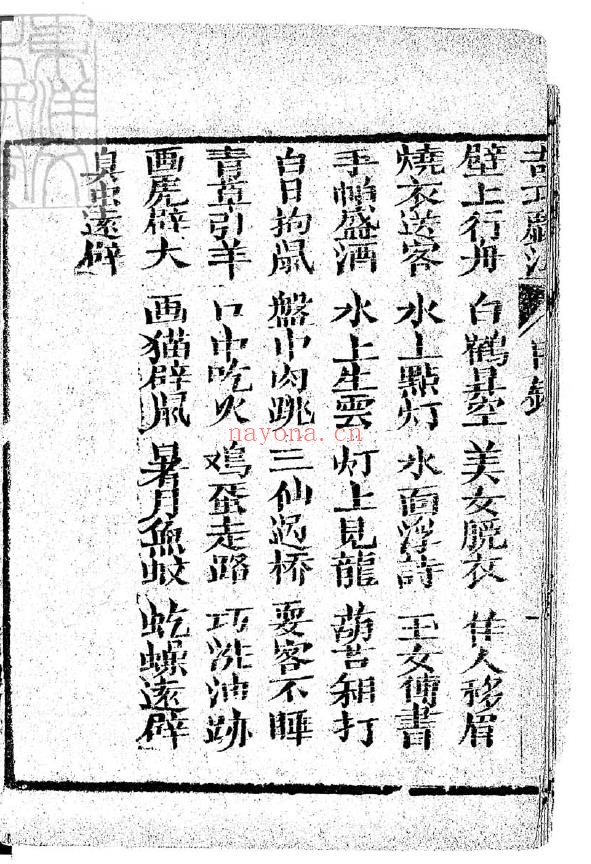 戲法 目錄
壁上行舟 白鶴昇空 美女脫衣 佳人移眉
燒衣送客 水上點灯 水面浮詩 王女傳書
手帕盛酒 水上生雲 灯上見龍 葫芦相打
白日拘鼠 盤中肉跳 三仙過桥 耍客不睡
青草引羊 口中吃火 鸡蛋走路 巧洗油跡
画虎辟大 画猫辟鼠 暑月魚蚊 虼螺遠辟
臭虫遠辟
nayona.cn